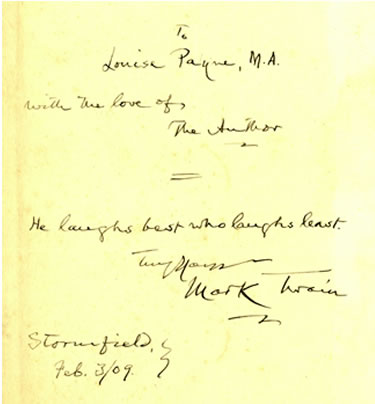 To
Louise Payne, M.A.
with the love of
The Author
He laughs best who laughs least.
Truly Yours
Mark Twain
Stormfield,
Feb. 3/09.